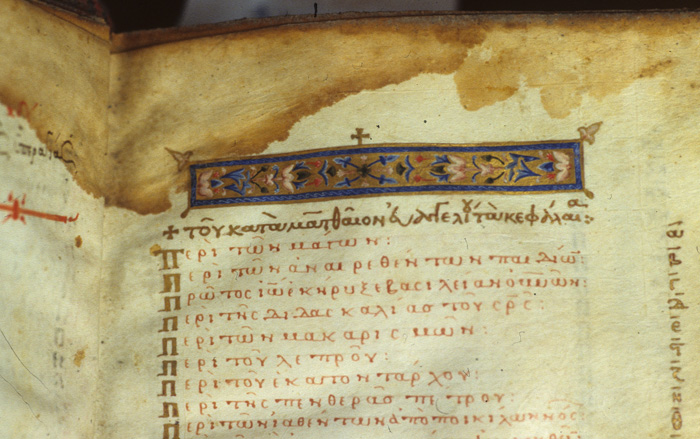 + τοῦ κατὰ ματθαῖον εὐαγγελίου τὰ κεφάλαια:
Περὶ τῶν μάγων:
Περὶ τῶν ἀναιρεθέντων παιδίω̅:
Πρῶτος ἰω̅ ἐκήρυξε βασιλείαν οὐνῶν:
Περὶ τῆς διδασκαλίας τοῦ σρ̅ς:
Περὶ τῶν μακαρισμῶν:
Περὶ τοῦ λεπροῦ:
Περὶ τοῦ ἑκατοντάρχου:
Περὶ τῆς πενθερᾶς πέτρου:
Περὶ τῶν ἰαθέντων ἀπὸ ποικίλων νόσ